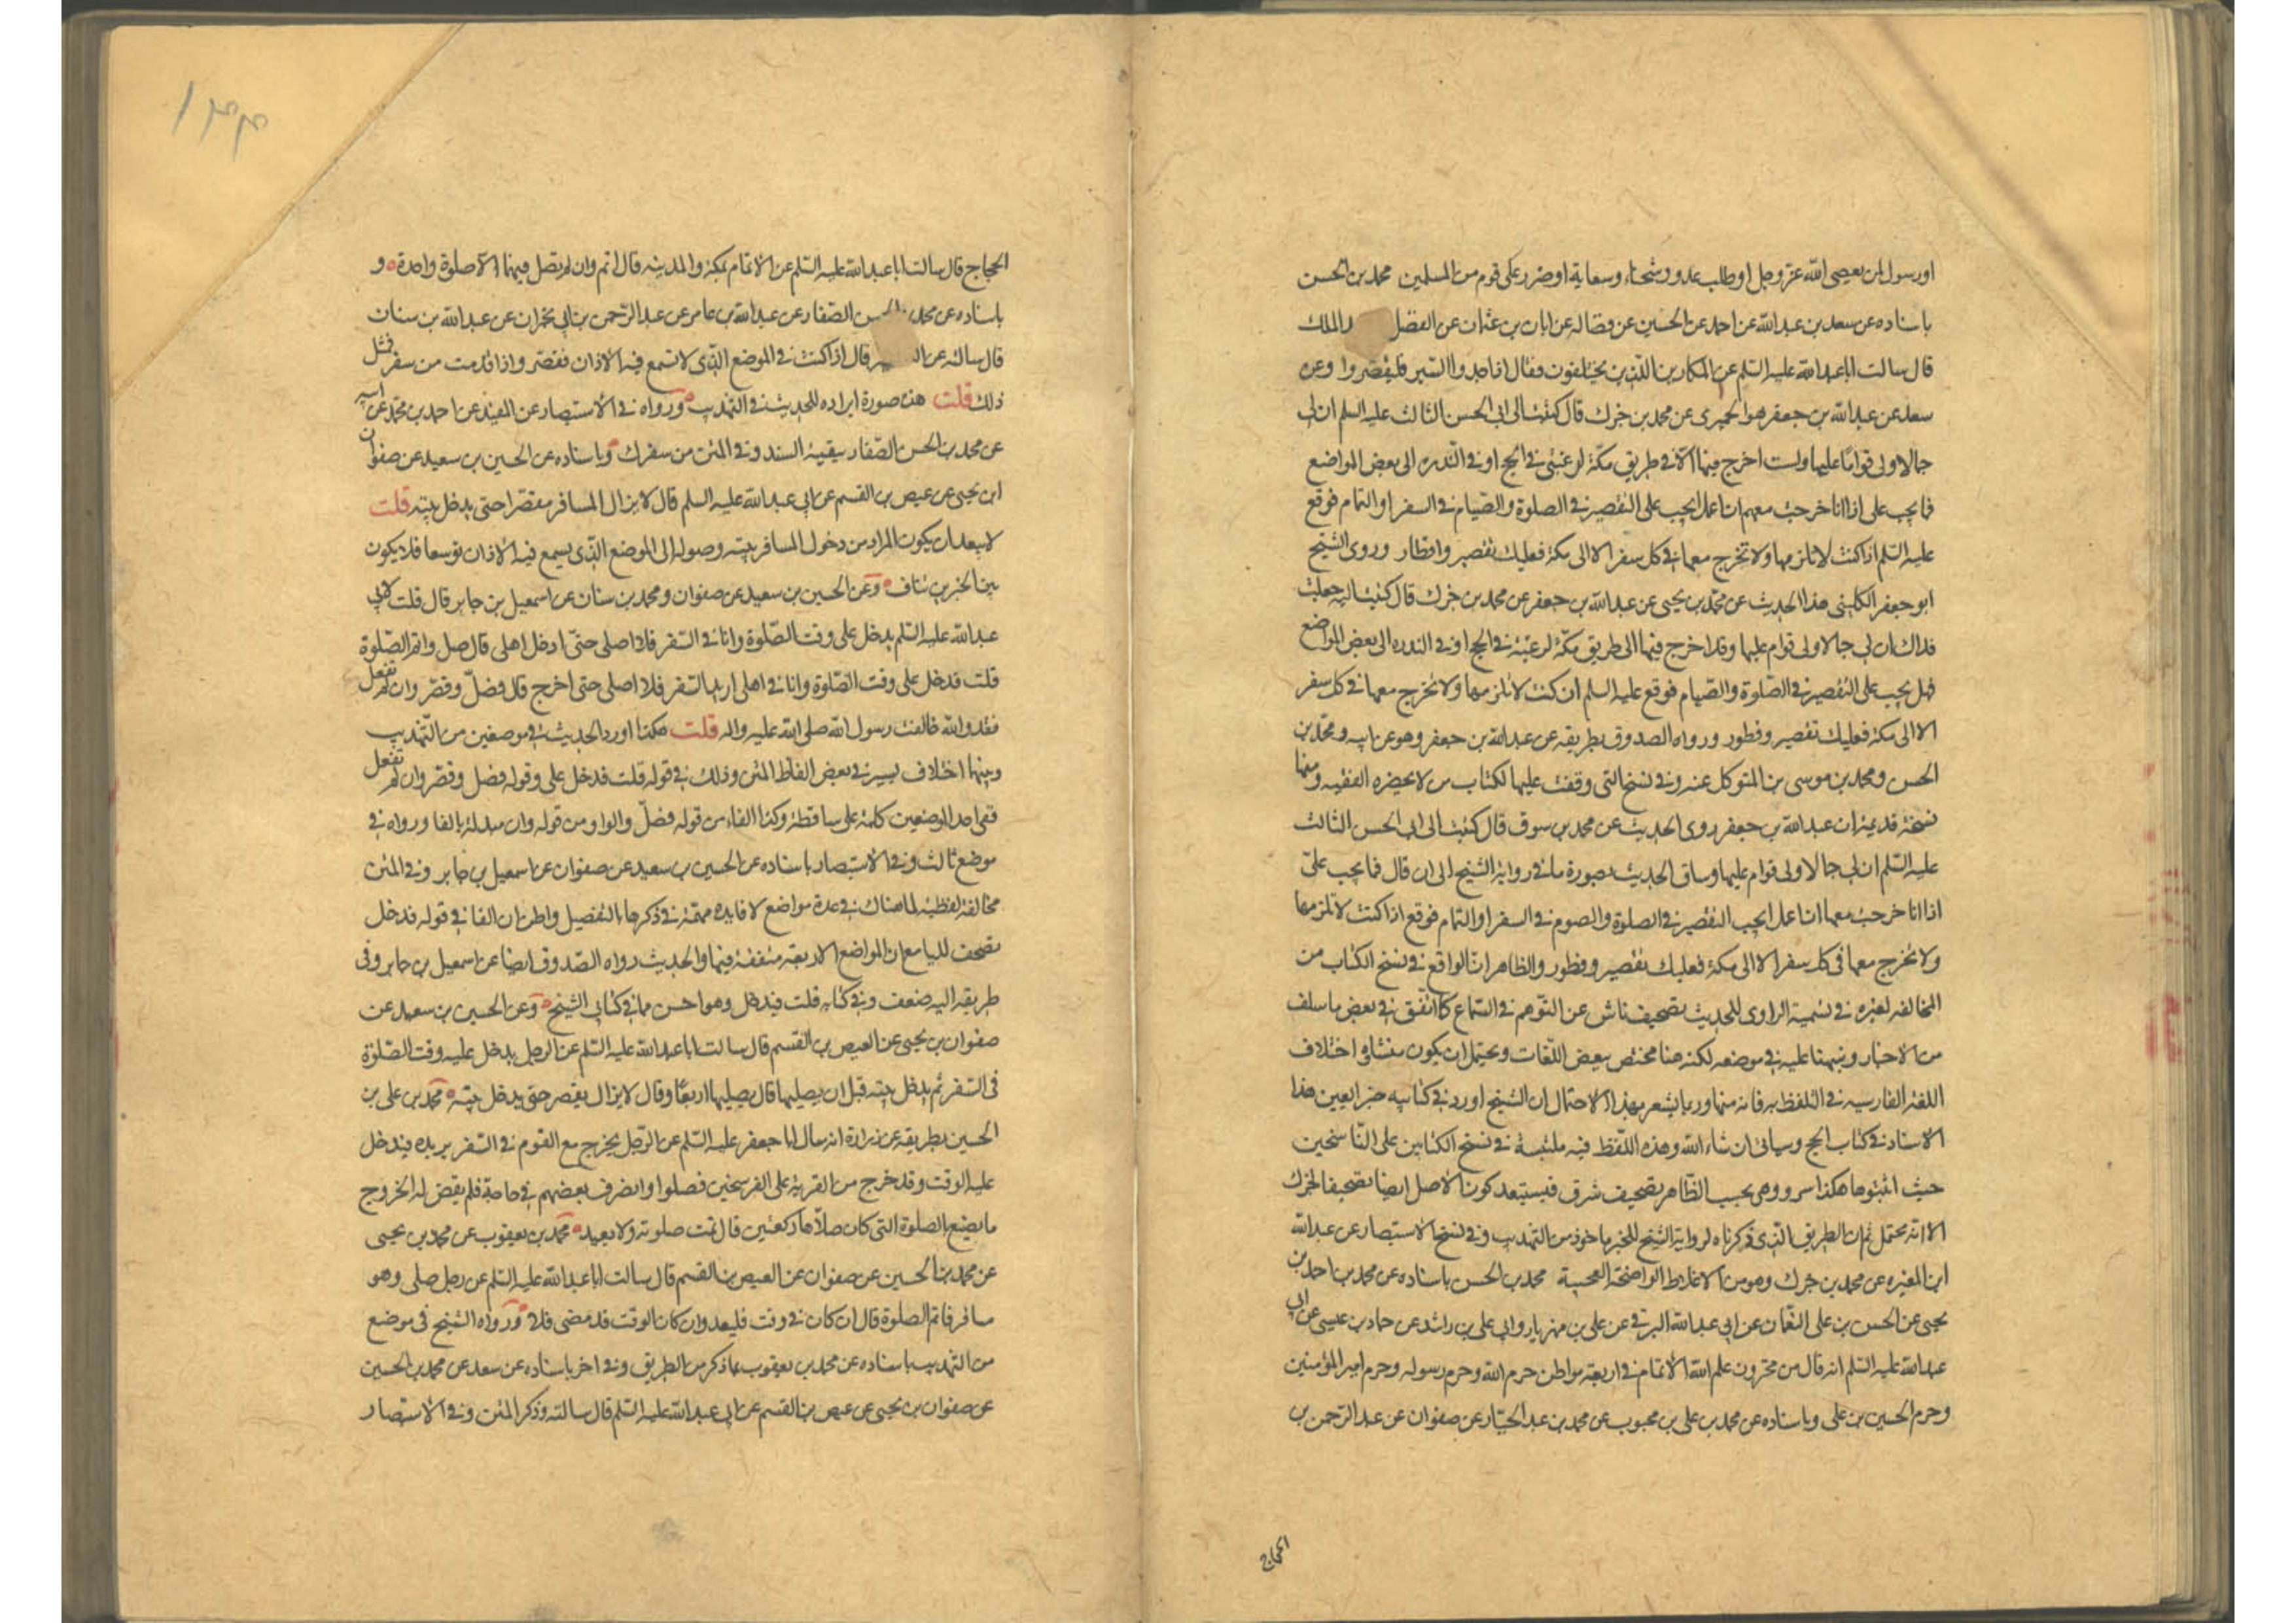 او رسول لمن يعصى الله عز وجل او طلب عدو وشحناء وسعاية او ضرر على قوم من المسلمين محمد بن الحسن
باسناده عن سعد بن عبدالله عن احمد عن الحسين عن فضاله عن ابان بن عثمان عن الفضل الملك
قال سالت اباعبدالله عليه السلم عن المكارين الذين يختلفون فقال اذا جدوا السير فليقصروا وعن
سعد عن عبدالله بن جعفر هو الحميرى عن محمد بن جزك قال كتبت الى ابى الحسن الثالث عليه السلم ان لى
جمالا ولى قواما عليها ولست اخرج فيها الا فى طريق مكة لرغبتى فى الحج او فى الندره الى بعض المواضع
فما يجب على اذا انا خرجت معهم ان اعمل ايجب على التقصير فى الصلوة والصيام فى السفر او التمام فوقع
عليه السلم اذا كنت لا تلزمها ولا تخرج معها فى كل سفر الا الى مكة فعليك تقصير وافطار وروى الشيخ
ابو جعفر الكلينى هذا الحديث عن محمد بن يحيى عن عبدالله بن جعفر عن محمد بن جزك قال كتبت اليه جعلت
فداك ان لى جمالا ولى قوام عليها وقد اخرج فيها الى طريق مكة لرغبة فى الحج او فى الندره الى بعض المواضع
فهل يجب على التقصير فى الصلوة والصيام فوقع عليه السلم ان كنت لا تلزمها ولا تخرج معها فى كل سفر
الا الى مكة فعليك تقصير وفطور ورواه الصدوق بطريقه عن عبدالله بن جعفر وهو عن ابيه ومحمد بن
الحسن ومحمد بن موسى بن المتوكل عنه وفى نسخ التى وقفت عليها لكتاب من لا يحضره الفقيه ومنها
نسخة قديمة ان عبدالله بن جعفر روى الحديث عن محمد بن سوق قال كتبت الى ابى الحسن الثالث
عليه السلم ان لى جمالا ولى قوام عليها وساق الحديث بصورة ما فى رواية الشيخ الى ان قال فما يجب علىّ
اذا انا خرجت معها ان اعمل ايجب التقصير فى الصلوة والصوم فى السفر او التمام فوقع اذا كنت لا تلزمها
ولا تخرج معها فى كل سفر الا الى مكة فعليك تقصير وفطور والظاهر ان الواقع فى نسخ الكتاب من
المخالفه لغيره فى تسمية الراوى للحديث تصحيف ناش عن التوهم فى السماع كما اتفق فى بعض ما سلف
من الاخبار ونبهنا عليه فى موضعه لكنه هنا مختص ببعض اللغات ويحتمل ان يكون منشاؤه اختلاف
اللغة الفارسيه فى التلفظ به فانه منها وربما يشعر بهذا الاحتمال ان الشيخ اورد فى كتابيه خبرا بعين هذا
الاسناد فى كتاب الحج وسياتى ان شاء الله وهذه اللفظ فيه ملتبسة فى نسخ الكتابين على الناسخين
حيث اثبتوها هكذا سرو وهى بحسب الظاهر تصحيف شرق فيستبعد كون الاصل ايضا تصحيفا لجزك
الا انه محتمل ثم ان الطريق الذى ذكرناه لرواية الشيخ للخبر ماخوذ من التهذيب وفى نسخ الاستبصار عن عبدالله
ابن المغيره عن محمد بن جزك وهو من الاغلاط الواضحة العجيبة محمد بن الحسن باسناده عن محمد بن احمد بن
يحيى عن الحسن بن على النعمان عن ابى عبدالله البرقى عن على بن مهزيار وابى على بن راشد عن حماد بن عيسى عن ابى
عبدالله عليه السلم انه قال من مخزون علم الله الاتمام فى اربعة مواطن حرم الله وحرم رسوله وحرم امير المؤمنين
وحرم الحسين بن على وباسناده عن محمد بن على بن محبوب عن محمد بن عبد الجبار عن صفوان عن عبد الرحمن بن
الحجاج
١٣٣
الحجاج قال سالت اباعبدالله عليه السلم عن الاتمام بمكة والمدينة قال اتم وان لم تصل فيهما الا صلوة واحدة و
باسناده عن محمد الحسن الصفار عن عبدالله بن عامر عن عبد الرحمن بن ابى نجران عن عبدالله بن سنان
قال سالته عن قال اذا كنت فى الموضع الذى لا تسمع فيه الاذان فقصر واذا قدمت من سفر فمثل
ذلك قلت هذه صورة ايراده للحديث فى التهذيب ورواه فى الاستبصار عن المفيد عن احمد بن محمد عن ابيه
عن محمد بن الحسن الصفار ببقية السند وفى المتن من سفرك وباسناده عن الحسين بن سعيد عن صفوان
ابن يحيى عن عيص بن القسم عن ابى عبدالله عليه السلم قال لا يزال المسافر مقصرا حتى يدخل بيته قلت
لا يبعد ان يكون المراد من دخول المسافر بيته وصوله الى الموضع الذى يسمع فيه الاذان توسعا فلا يكون
بين الخبرين تناف وعن الحسين بن سعيد عن صفوان ومحمد بن سنان عن اسمعيل بن جابر قال قلت لابى
عبدالله عليه السلم يدخل على وقت الصلوة وانا فى السفر فلا اصلى حتى ادخل اهلى قال صل واتم الصلوة
قلت فدخل على وقت الصلوة وانا فى اهلى اريد السفر فلا اصلى حتى اخرج قال فصل وقصر وان لم تفعل
فقد والله خالفت رسول الله صلى الله عليه واله قلت هكذا اورد الحديث فى موضعين من التهذيب
وبينهما اختلاف يسير فى بعض الفاظ المتن وذلك فى قوله قلت فدخل على وقوله فصل وقصر وان لم تفعل
ففى احد الموضعين كلمة على ساقطة وكذا الفاء من قوله فصل والواو من قوله وان مبدلة بالفا ورواه فى
موضع ثالث وفى الاستبصار باسناده عن الحسين بن سعيد عن صفوان عن اسمعيل بن جابر وفى المتن
مخالفة لفظية لما هناك فى عدة مواضع لا فايده مهمة فى ذكرها بالتفصيل واظن ان الفا فى قوله فدخل
تصحيف لليا مع ان المواضع الاربعة متفقة فيها والحديث رواه الصدوق ايضا عن اسمعيل بن جابر وفى
طريقه اليه ضعف وفى كتابه قلت فيدخل وهو احسن مما فى كتابى الشيخ وعن الحسين بن سعيد عن
صفوان بن يحيى عن العيص بن القسم قال سالت اباعبدالله عليه السلم عن الرجل يدخل عليه وقت الصلوة
فى السفر ثم يدخل بيته قبل ان يصليها قال يصليها اربعا وقال لا يزال يقصر حتى يدخل بيته محمد بن على بن
الحسين بطريقه عن زرارة انه سال ابا جعفر عليه السلم عن الرجل يخرج مع القوم فى السفر يريده فيدخل
عليه الوقت وقد خرج من القرية على الفرسخين فصلوا وانصرف بعضهم فى حاجة فلم يقض له الخروج
ما يصنع الصلوة التى كان صلاها ركعتين قال تمت صلوته ولا يعيد محمد بن يعقوب عن محمد بن يحيى
عن محمد بن الحسين عن صفوان عن العيص بن القسم قال سالت اباعبدالله عليه السلم عن رجل صلى وهو
مسافر فاتم الصلوة قال ان كان فى وقت فليعد وان كان الوقت قد مضى فلا ورواه الشيخ فى موضع
من التهذيب باسناده عن محمد بن يعقوب بما ذكر من الطريق وفى اخر باسناده عن سعد عن محمد بن الحسين
عن صفوان بن يحيى عن عيص بن القسم عن ابى عبدالله عليه السلم قال سالته وذكر المتن وفى الاستبصار